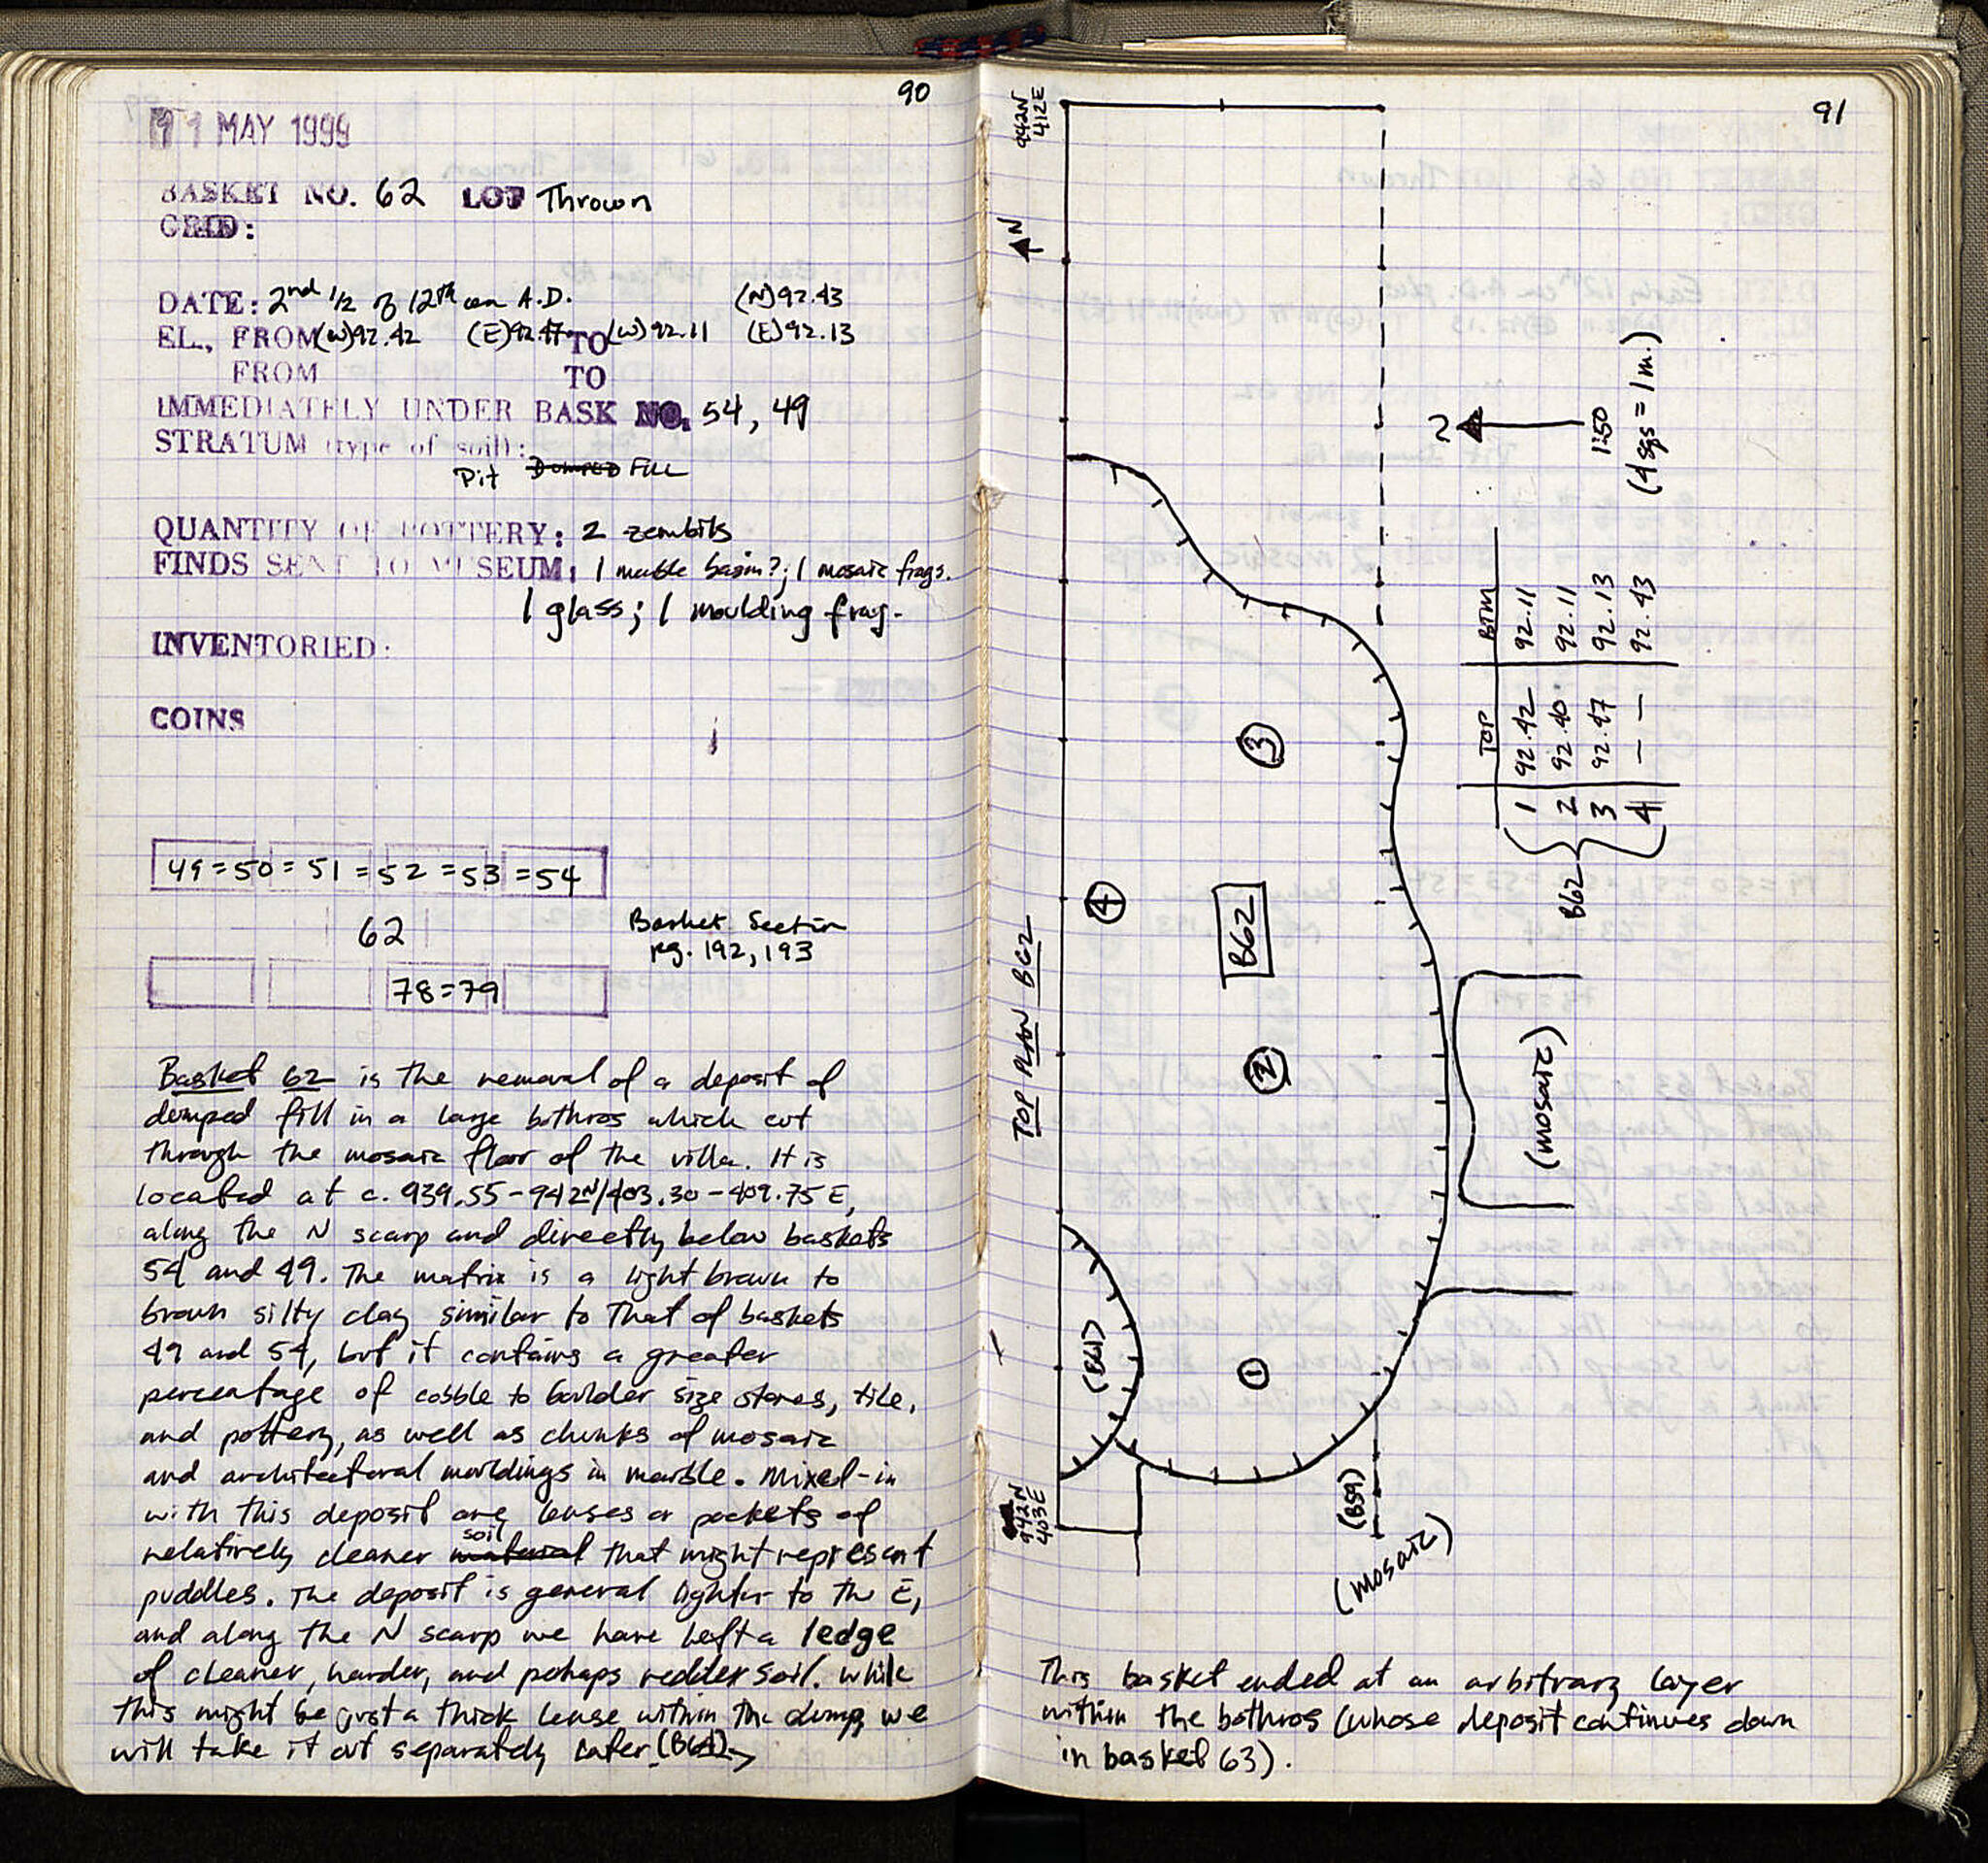 90
11 MAY 1999
BASKET NO. 62 LOT Thrown
GRID:
DATE: 2nd 1/2 of 12th cen A.D. (N)92.43
EL., FROM (W)92.42 (E)92.47 TO (W)92.11 (E)92.13
FROM TO
IMMEDIATELY UNDER BASK NO. 54, 49
STRATUM (type of soil):
Pit Dumped FILL
QUANTITY OF POTTERY: 2 zembils
FINDS SENT TO MUSEUM: 1 marble basin?; 1 mosaic frags.
1 glass; 1 moulding frag.
INVENTORIED:
COINS
49=50=51=52=53=54
62
Basket Section
pg. 192, 193
78=79
Basket 62 is the removal of a deposit of
dumped fill in a large bothros which cut
through the mosaic floor of the villa. It is
located at c. 939.55-942N/403.30-409.75 E,
along the N scarp and directly below baskets
54 and 49. The matrix is a light brown to
brown silty clay similar to that of baskets
49 and 54, but it contains a greater
percentage of cobble to boulder size stones, tile,
and pottery, as well as chunks of mosaic
and architectural mouldings in marble. Mixed-in
with this deposit are lenses or pockets of
relatively cleaner material soil that might represent
puddles. The deposit is general lighter to the E,
and along the N scarp we have left a ledge
of cleaner, harder, and perhaps redder soil. While
this might be just a thick lense within the dump, we
will take it out separately later (B64).
91
942N
412E
N
N
1:50
(4 sqs = 1 m.)
TOP BTM
1 92.42 92.11
2 92.40 92.11
3 92.47 92.13
4 - - 92.43
B62
3
4
B62
TOP PLAN B62
2
(mosaic)
(B61)
1
942N
403E
(B59)
(mosaic)
This basket ended at an arbitrary layer
within the bothros (whose deposit continues down
in basket 63).